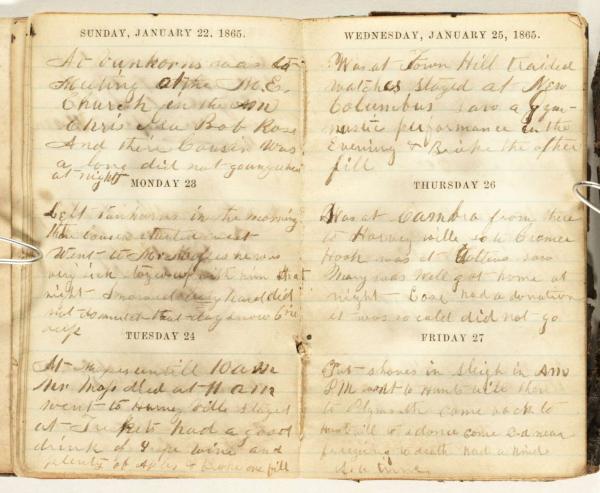 SUNDAY, JANUARY 22, 1865.
At Vanhorns was at
Meeting at the M.E.
Church in the AM
Chris Ida Bob Rose
And there Cousin Was
a long did not go
at night
MONDAY 23
Left Vanhorns in the morning
there Cousin started west
Went to Mr he was
very sick stayed up with him that
night hard did
not so much that day snow
deep
TUESDAY 24
At untill 10 am
Mr died at 11 am
went to Harvey ville stayed
at had a good
drink of wine and
plenty of & Broke one fill
WEDNESDAY, JANUARY 25, 1865.
Was at Town Hill traided
watches stayed at New
Columbus saw a gym
nastic performance in the
Evening & Broke the other
fill
THURSDAY 26
Was at Cambra from there
to Harvey ville saw Cromer
Hook was at Cullins saw
Mary was well got home at
night had a donation
it was so cold did not go
FRIDAY 27
Put shoves in sleigh in AM
PM went to Hunts ville then
to Plymouth came back to
Huntsville to a dance come Dad near
freezing to death had a kind